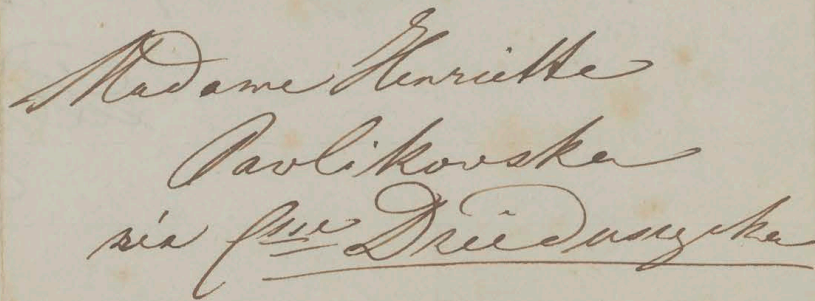 Madame Henriette
Pavlikovska
née Csse Dzieduszycka